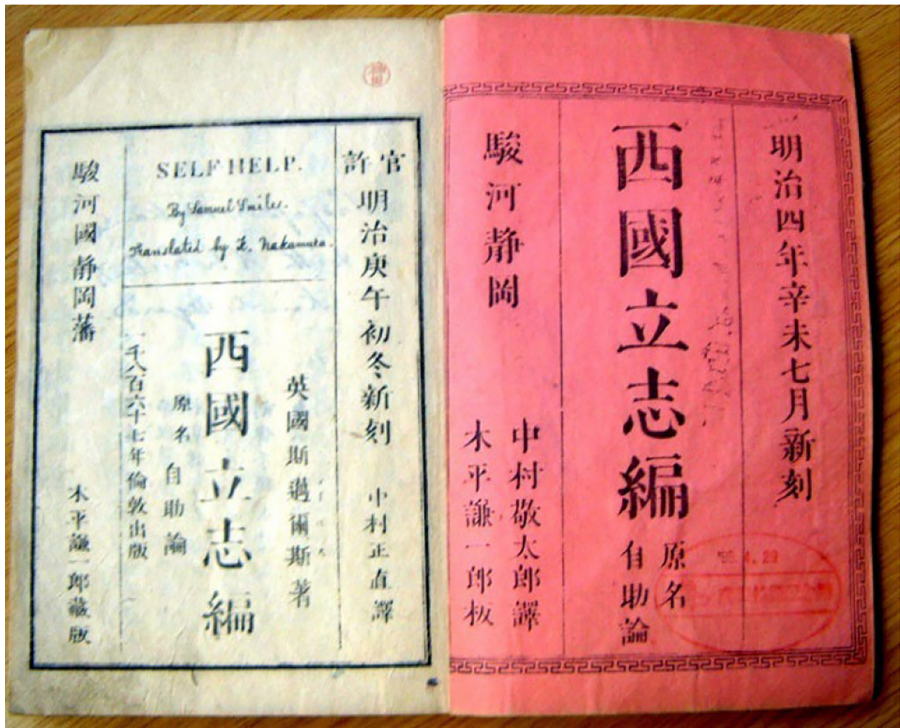 明治四年辛未七月新刻
西國立志編
原名
自助論
駿河静岡
中村敬太郎譯
木平謙一郎板
官許
明治庚午初冬新刻
中村正直譯
SELF HELP.
By Samuel Smiles.
Translated by K. Nakamura.
英國斯邁爾斯著
西國立志編
原名自助論
一千八百六十七年倫敦出版
駿河國静岡藩
木平謙一郎藏版